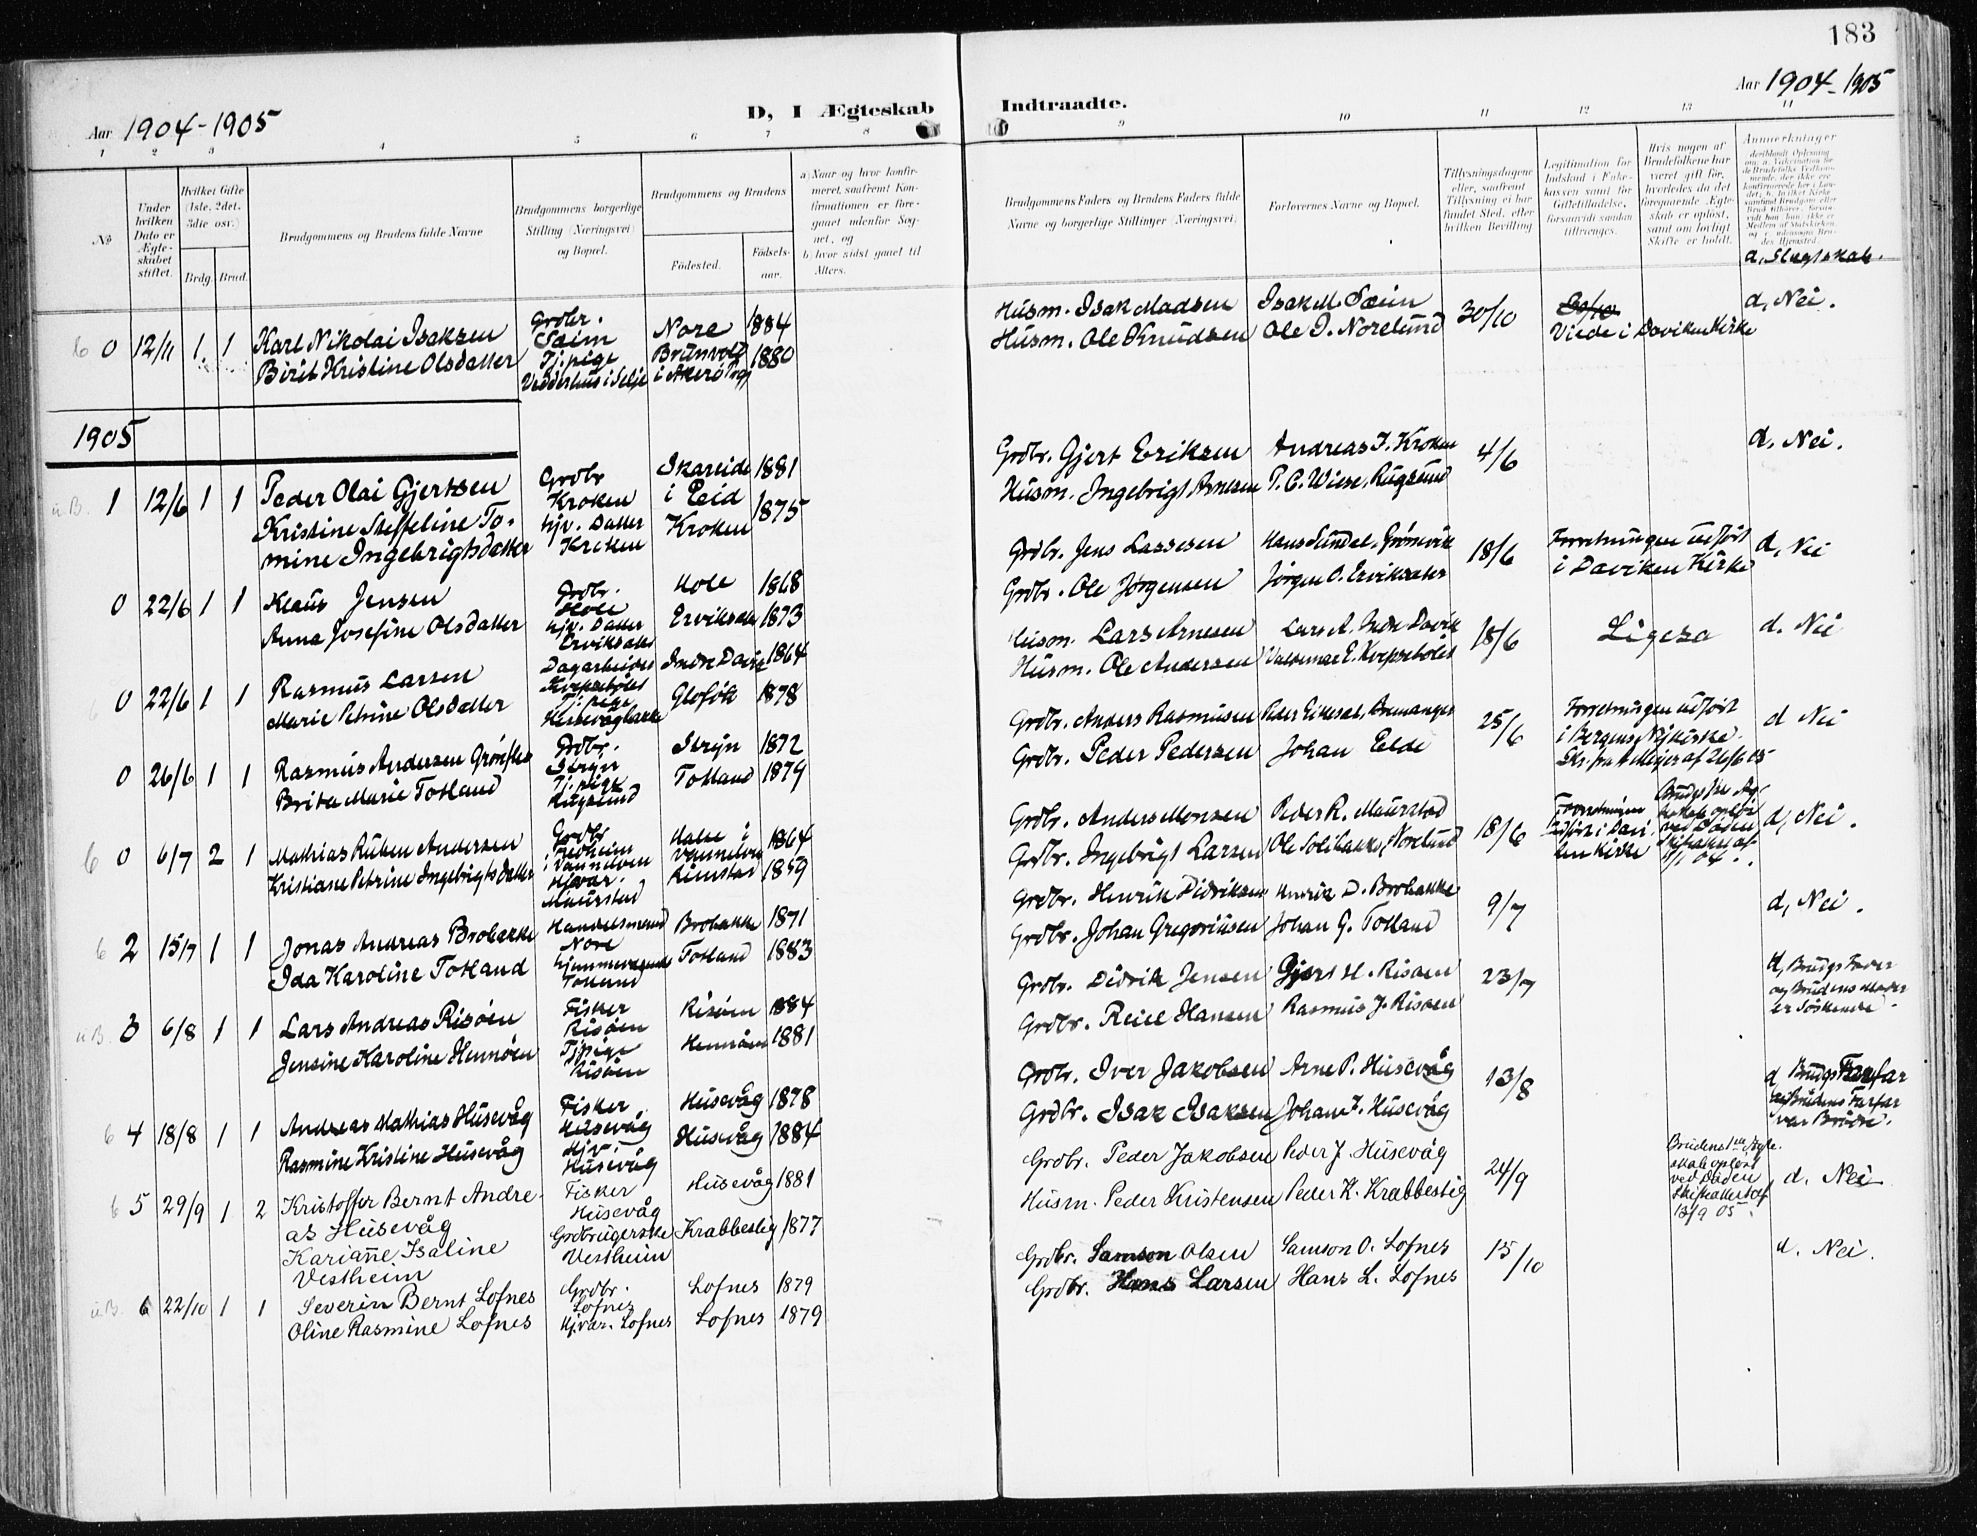 183
Aar 1904-1905
D, I Ægteskab Indtraadte.
Aar 1904-1905
1 2 3 4 5 6 7 8 9 10 11 12 13 14
No
Under hvilken Dato er Ægteskabet stiftet.
Hvilket Gifte (1ste, 2det, 3die osv.)
Brdg. Brud.
Brudgommens og Brudens fulde Navne
Brudgommens borgerlige Stilling (Næringsvei) og Bopæl.
Brudgommens og Brudens
Fødested. Fødsels-aar.
a) Naar og hvor konfirmeret, saafremt Konfirmationen er foregaaet udenfor Sognet, og
b) hvor sidst gaaet til Alters.
Brudgommens Faders og Brudens Faders fulde Navne og borgerlige Stillinger (Næringsvei)
Forlovernes Navne og Bopæl.
Tillysningsdagene eller, saafremt Tillysning ei har fundet Sted, efter hvilken Bevilling
Legitimation for Indskud i Enkekassen samt for Giftetilladelse, forsaavidt saadan tiltrænges.
Hvis nogen af Brudefolkene har været gift før, hvorledes da det foregaaende Ægteskab er opløst, samt om lovligt Skifte er holdt.
Anmerkninger
d, Slægtskab.
0 12/11 1 1 Karl Nikolai Isaksen
Berit Kristine Olsdatter
Grdbr.
Sæim
Tj. pige
Vedderhus i Selje
Nore 1884
Brunvold
i Akerø Prgj 1880
Husm. Isak Madsen Isak M. Sæim
Husm. Ole Knudsen Ole I. Norelund
30/10
Viede i Daviken Kirke
d, Nei.
1905
1 12/6 1 1 Peder Olai Gjertsen
Kristine Steffeline To-
mine Ingebrigtsdatter
Grdbr
Kroken
Hjv. Datter
Kroken
Skareide 1881
i Eid
Kroken 1875
Grdbr. Gjert Eriksen Andreas I. Kroken
Husm. Ingebrigt Arnesen P. C. Wiese, Rugsund
4/6
d. Nei.
0 22/6 1 1 Klaus Jensen
Anna Josefine Olsdatter
Grdbr.
Hole
Hjv. Datter
Erviksæter
Hole 1868
Erviksæter 1873
Grdbr. Jens Lassesen Hans Sundal, Grønevik
Grdbr. Ole Jørgensen Jørgen O. Erviksæter
18/6
Forretningen udført
i Daviken Kirke
d, Nei
0 22/6 1 1 Rasmus Larsen
Marie Petrine Olsdatter
Dagarbeider
Tj. pige
Indre Davik 1864
1878
Husm. Lars Arnesen Lars A. Indre Davik
Husm. Ole Andersen Valdemar E.
18/6
Ligesa
d. Nei
0 26/6 1 1 Rasmus Andersen
Brita Marie Totland
Grdbr.
Stryn
Tj. pige
Rugsund
Stryn 1872
Totland 1879
Grdbr. Anders Rasmusen Peder Eikeset, Bremanger
Grdbr. Peder Pedersen Johan Eide
25/6
Forretningen udført
i Bergens Nykirke.
d Nei
0 6/7 2 1 Mathias Ruben Andersen
Kristiane Petrine Ingebrigtsdatter
Grdbr
i Vannelven
Hjvar.
Maurstad
1864
Rimstad 1859
Grdbr. Anders Monsen Peder R. Maurstad
Grdbr. Ingebrigt Larsen Ole Solibakke, Norlund
18/6
Forretningen
udført i Davi-
ken Kirke
d, Nei.
2 15/7 1 1 Jonas Andreas Brobakke
Ida Karoline Totland
Handelsmand
Nore
Hjemmeværende
Totland
Brobakke 1871
Totland 1883
Grdbr. Henrik Didriksen Henrik D. Brobakke
Grdbr. Johan Gregoriusen Johan G. Totland
9/7
d, Nei.
3 6/8 1 1 Lars Andreas Risøen
Jensine Karoline Hennøen
Fisker
Risøen
Tjpige
Risøen
Risøen 1884
Hennøen 1881
Grdbr. Didrik Jensen Gjert H. Risøen
Grdbr. Reiel Hansen Rasmus J. Risøen
23/7
d, Brudgs Fader
og Brudens Moder
er Søskende.
4 18/8 1 1 Andreas Mathias Husevåg
Rasmine Kristine Husevåg
Fisker
Husevåg
Hjv
Husevåg
Husevåg 1878
Husevåg 1884
Grdbr. Iver Jakobsen Arne P. Husevåg
Grdbr. Isak Isaksen Johan I. Husevåg
13/8
d, Brudgs Farfar
og Brudens Farfar
var Brødre.
5 29/9 1 2 Kristoffer Bernt Andre-
as Husevåg
Kariane Isaline
Vestheim
Fisker
Husevåg
Grdbrugerske
Vestheim
Husevåg 1881
Krabbestig 1877
Grdbr. Peder Jakobsen Peder J. Husevåg
Husm. Peder Kristensen Peder K. Krabbestig
24/9
Brudens 1ste Ægte-
skab opløst
ved Døden
Skifteattest af
13/9 05.
d. Nei
6 22/10 1 1 Severin Bernt Lofnes
Oline Rasmine Lofnes
Grdbr.
Lofnes
Hjvær. Lofnes
Lofnes 1879
Lofnes 1879
Grdbr. Samson Olsen Samson O. Lofnes
Grdbr. Hans Larsen Hans L. Lofnes
15/10
d. Nei.